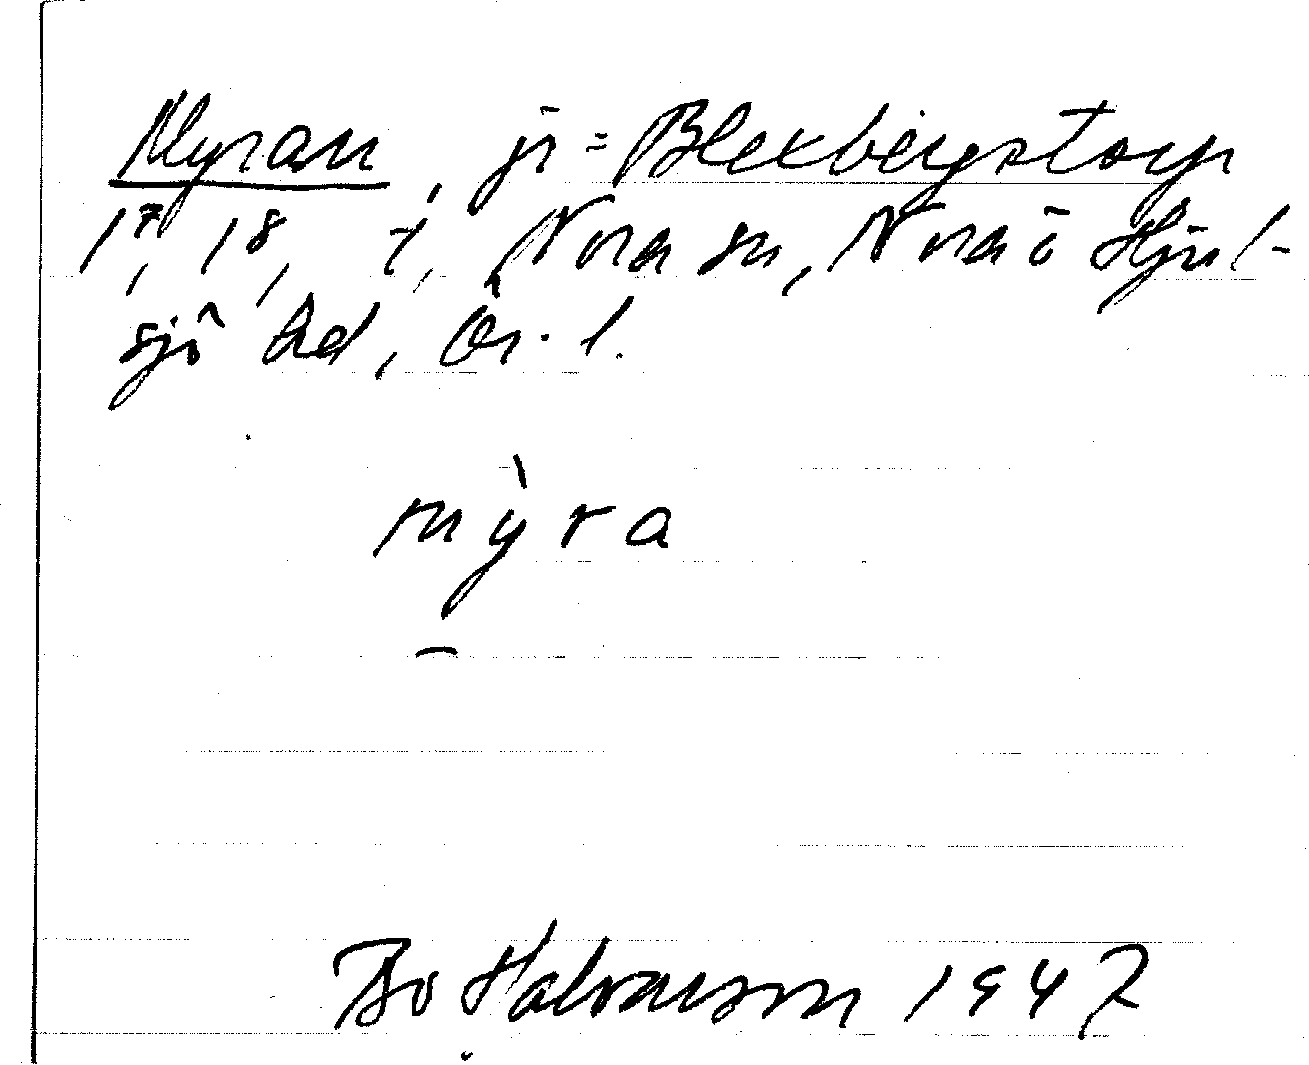 Myran, jr = Blexbergstorp
1⁷, 1⁸, t, Nora sn, Nora o Hjul-
sjö hd, Ör. l.
mỳra
Bo Halvarson 1947